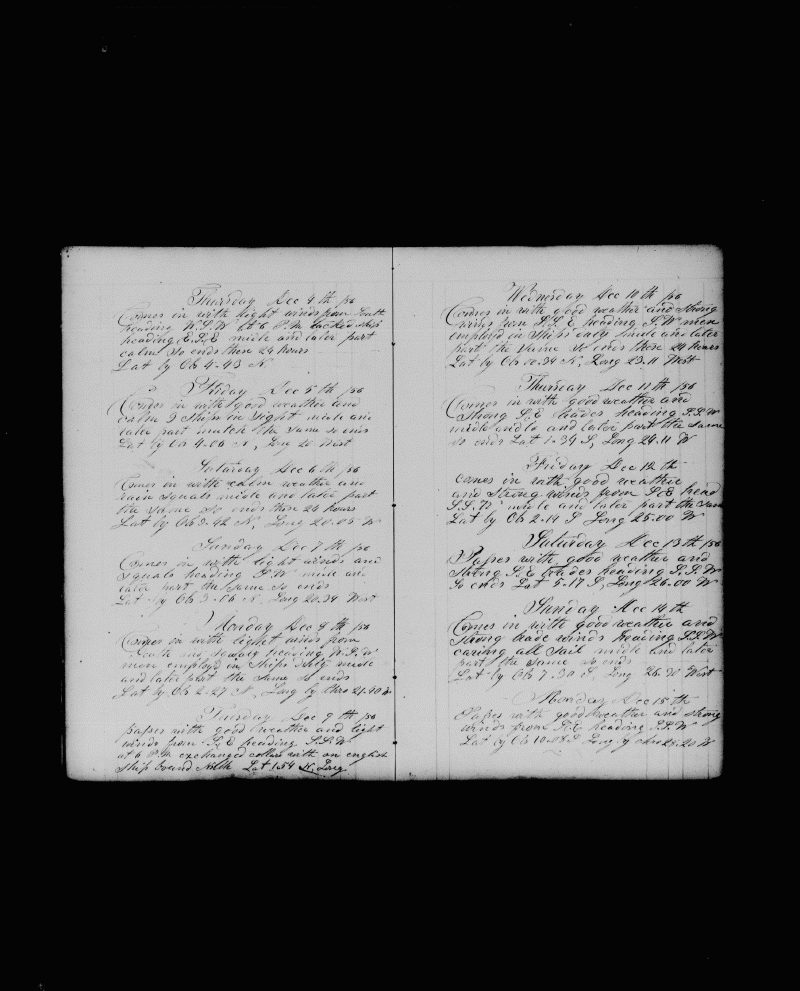 Thursday Dec 4th /56
Comes in with light winds from South
heading W.S.W at 6 P.M. tacked ship
heading E.S.E midle and later part
calm So ends these 24 hours
Lat by Ob 4-43 N
Friday Dec 5th /56
Comes in with good weather and
calm 2 Ships in Sight midle and
later part the Same So ends
Lat by Ob 4-06 N, Long 20 West
Saturday Dec 6th /56
Comes in with calm weather and
rain Squals midle and later part
the Same So ends these 24 hours
Lat by Ob 3-42 N, Long 20.05 W
Sunday Dec 7th /56
Comes in with light winds and
Squals heading S.W midle and
later part the Same So ends
Lat by Ob 3-06 N, Long 20.34 West
Monday Dec 8th /56
Comes in with light winds from
South and heading W.S.W
men employd in Ships duty midle
and later part the Same So ends
Lat by Ob 2-27 N, Long by Chro 21.40
Tuesday Dec 9th /56
passes with good weather and light
winds from S.E heading S.S.W
at 6 P.M. exchanged collars with an english
Ship bound North Lat 1.54 N. Long
Wednesday Dec 10th /56
Comes in with good weather and Strong
winds from S.S.E heading S.W men
employd in Ships duty midle and later
part the Same So ends these 24 hours
Lat by Ob 00.34 N, Long 23.11 West
Thursday Dec 11th /56
Comes in with good weather and
Strong S.E trades heading S.S.W
midle and later part the Same
So ends Lat 1-34 S, Long 24.11 W
Friday Dec 12th
comes in with good weather
and Strong winds from S.E head
S.S.W midle and later part the Same
Lat by Ob 2-14 S Long 25.00 W
Saturday Dec 13th /56
Passes with good weather and
Strong S.E trades heading S.S.W
So ends Lat 5-17 S, Long 26.00 W
Sunday Dec 14th
Comes in with good weather and
Strong trade winds heading S.S.W
caring all Sail midle and later
part the Same So ends
Lat by Ob 7.30 S Long 26.30 West
Monday Dec 15th
Passes with good weather and Strong
winds from S.E heading S.S.W
Lat by Ob 10 S Long by Chro W